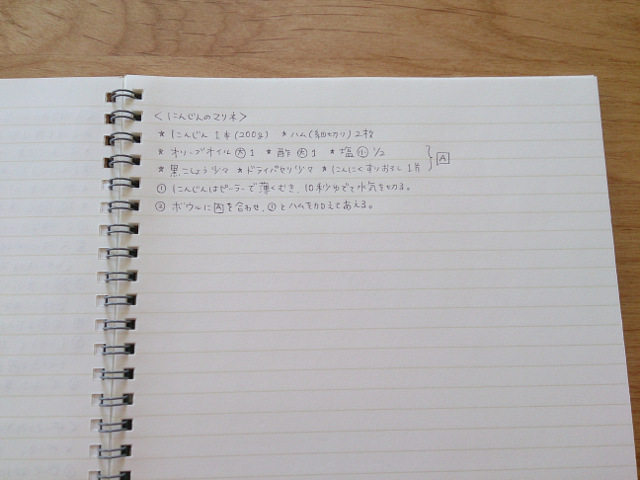 <にんじんのマリネ>
* にんじん 1本(200g) * ハム(細切り)2枚
* オリーブオイル 大 1 * 酢 大 1 * 塩 小 1/2
* 黒こしょう少々 * ドライパセリ少々 * にんにくすりおろし 1片 } A
① にんじんはピーラーで薄くむき、10秒ゆでて水気を切る。
② ボウルに A を合わせ、①とハムを加えてあえる。